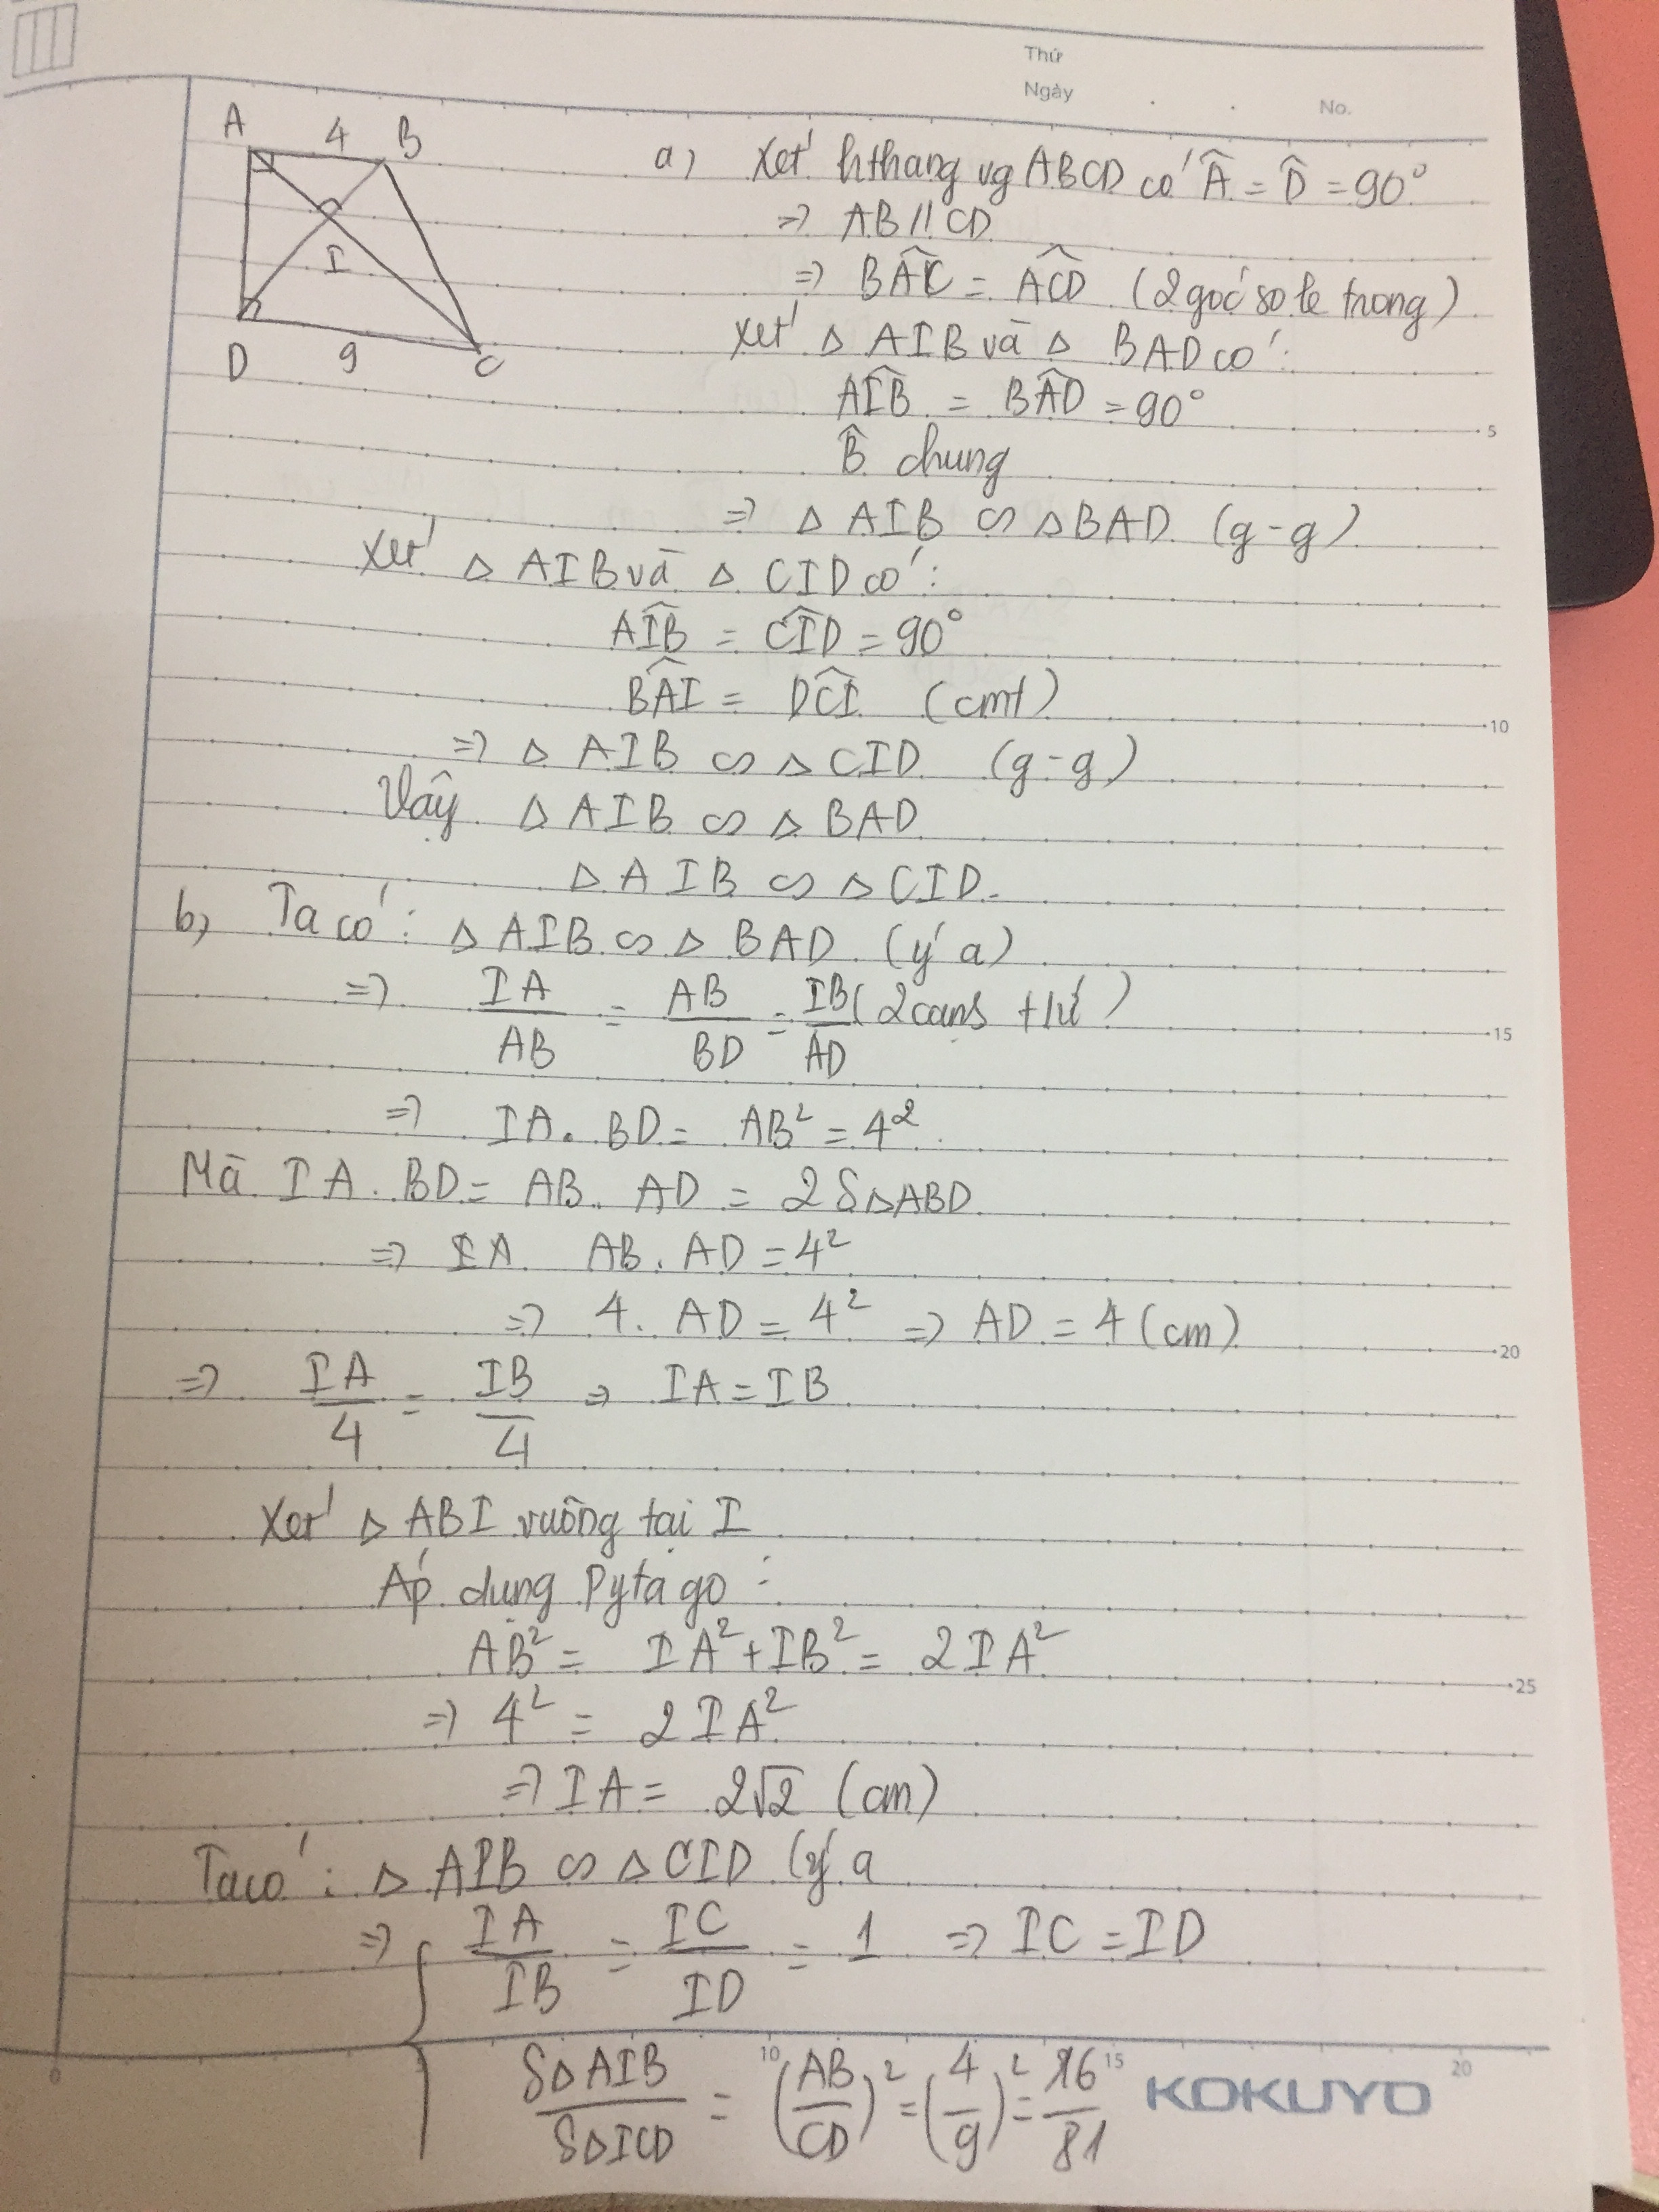 Thứ
Ngày
No.
A 4 B
I
D 9 C
a) Xét hthang vg ABCD có Â = D̂ = 90°
=> AB // CD
=> BÂC = AĈD (2 góc so le trong)
Xét △ AIB và △ BAD có:
AÎB = BÂD = 90°
B̂ chung
=> △ AIB ∽ △BAD (g-g)
Xét △ AIB và △ CID có:
AÎB = CÎD = 90°
BÂI = DĈI (cmt)
=> △ AIB ∽ △ CID (g-g)
Vậy △ AIB ∽ △ BAD
△ AIB ∽ △ CID.
b) Ta có: △ AIB ∽ △ BAD (ý a)
=> IA/AB = AB/BD = IB/AD (2 cạnh tứ)
=> IA. BD = AB² = 4².
Mà IA. BD = AB. AD = 2S△ABD
=> IA AB. AD = 4²
=> 4. AD = 4² => AD = 4 (cm)
=> IA/4 = IB/4 => IA = IB
Xét △ ABI vuông tại I
Áp dụng Pytago:
AB² = IA² + IB² = 2IA²
=> 4² = 2IA²
=> IA = 2√2 (cm)
Ta có: △ AIB ∽ △ CID (ý a
=> { IA/IB = IC/ID = 1 => IC = ID
S△AIB/S△ICD = (AB/CD)² = (4/9)² = 16/81
5
10
15
20
25
0
10
15
20
KOKUYO